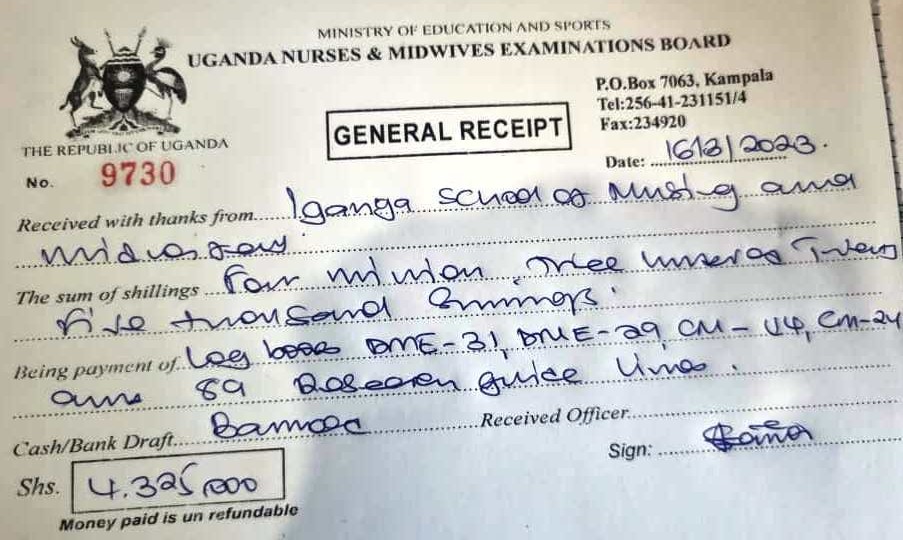 MINISTRY OF EDUCATION AND SPORTS
UGANDA NURSES & MIDWIVES EXAMINATIONS BOARD
P.O.Box 7063, Kampala
Tel:256-41-231151/4
Fax:234920
GENERAL RECEIPT
THE REPUBLIC OF UGANDA
No. 9730
Date: 16/3/2023.
Received with thanks from Iganga School of Nursing and
Midwifery
The sum of shillings Four million, Three hundred Twenty
five thousand Shillings.
Being payment of Log books DME-31, DME-29, CM-14, CM-24
and 89 Research guide lines.
Cash/Bank Draft Banked Received Officer
Sign:
Shs. 4.325,000
Money paid is un refundable